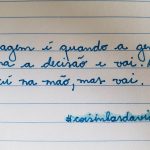 agem é quando a ge
a a decisão e vai.
i na mão, mas vai.
#coisinhasdavi